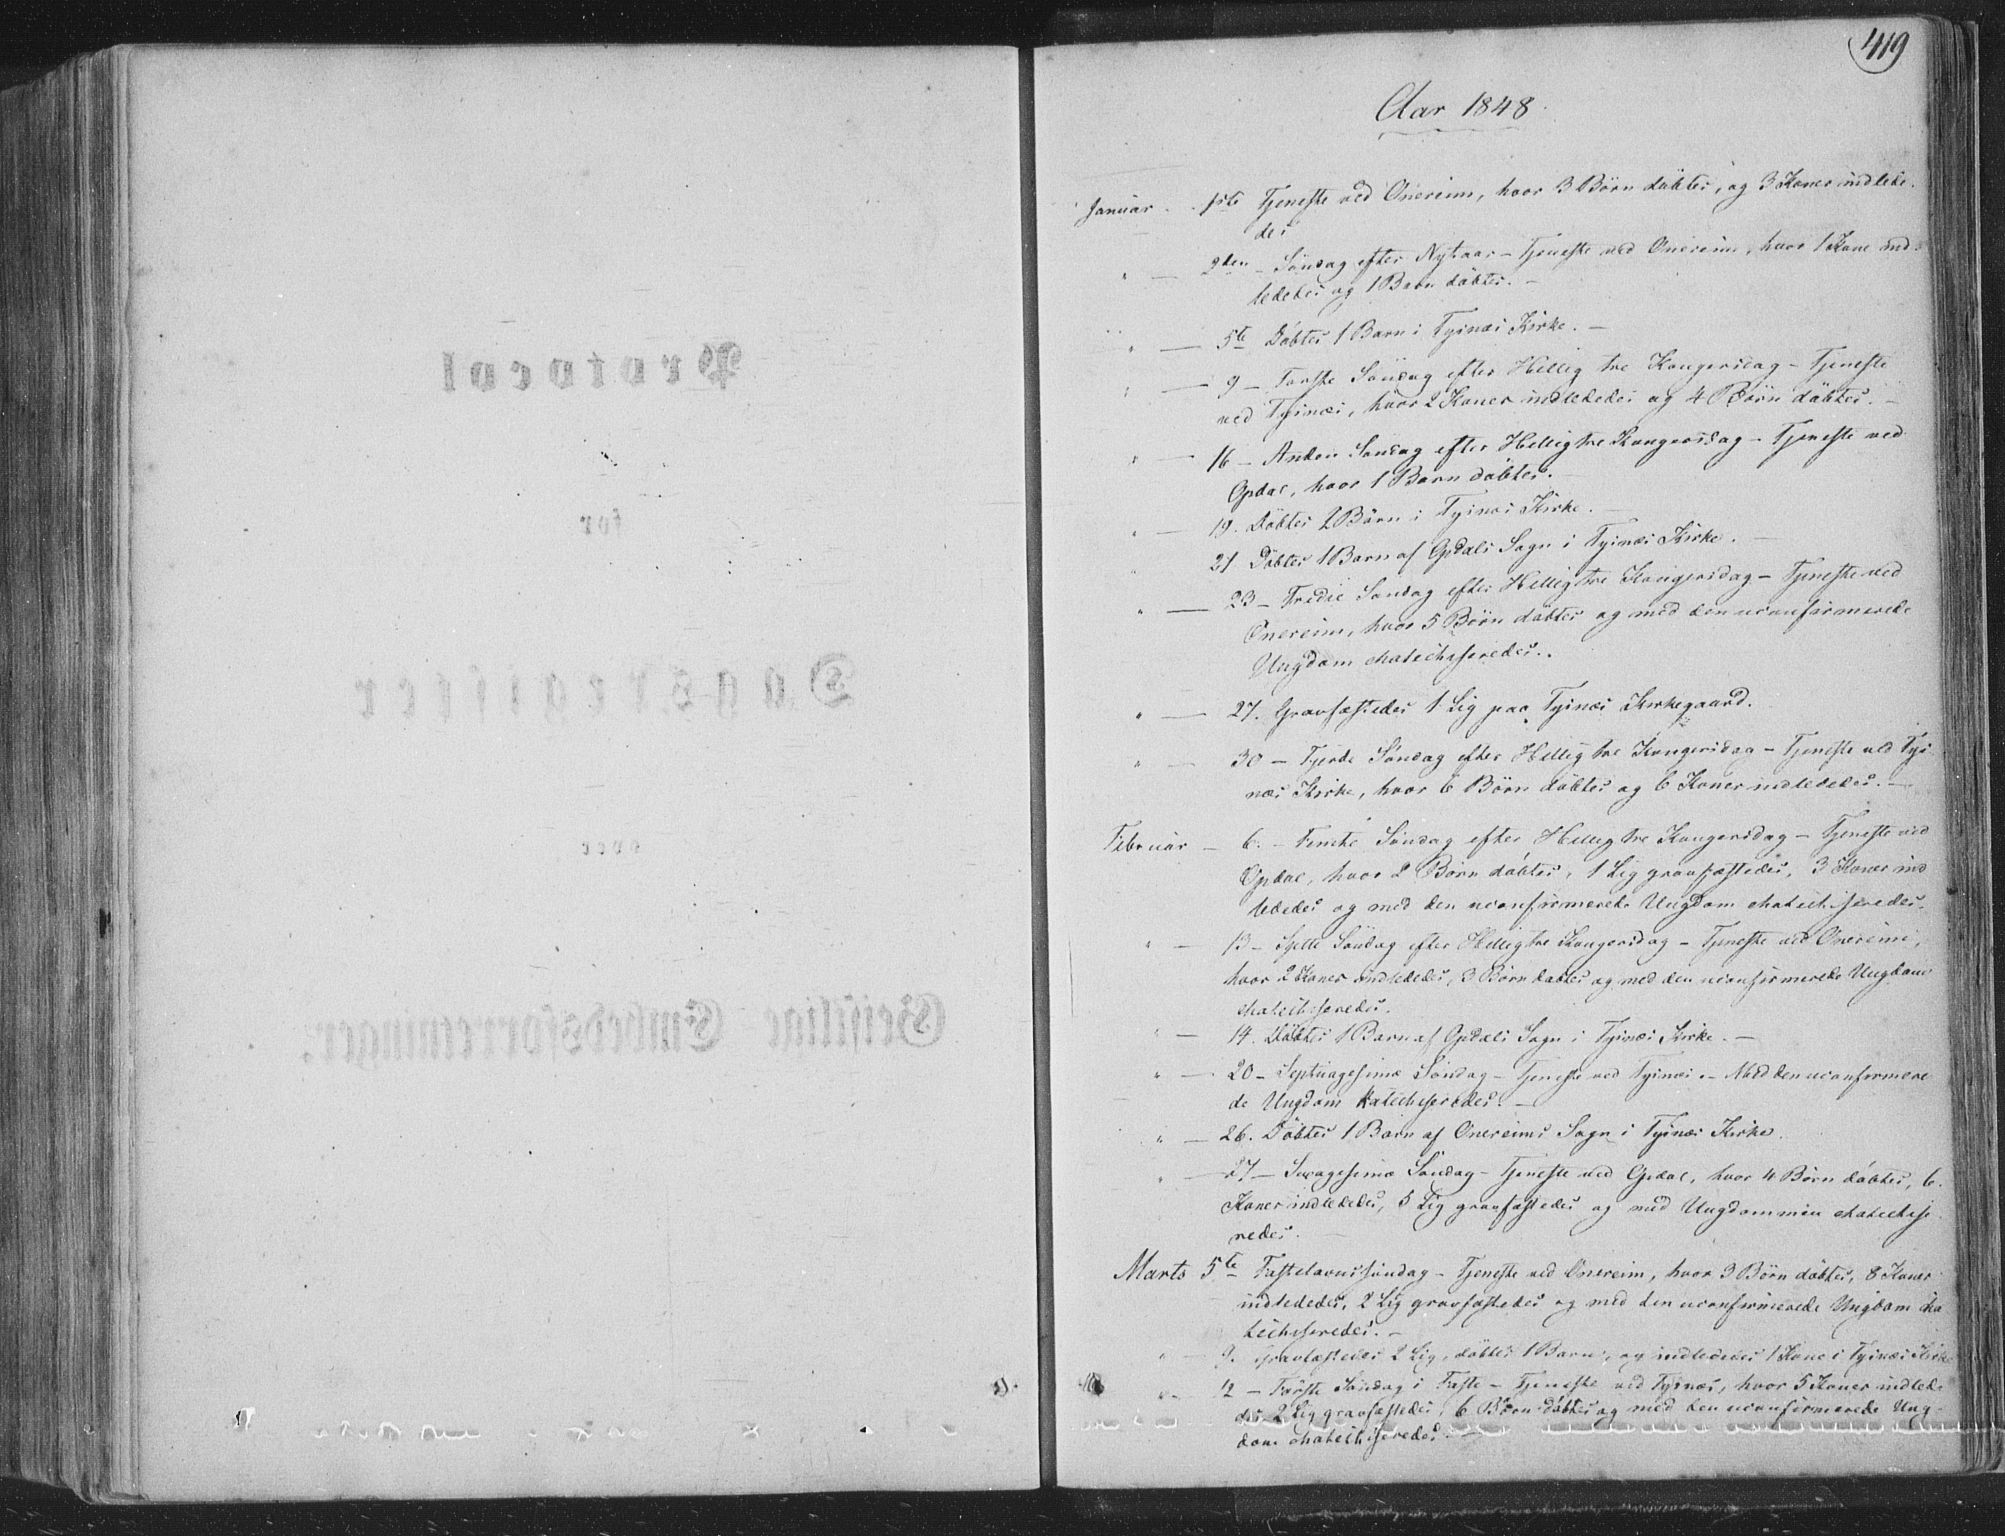 Protocol
for
Dagsregister
over
Geistlige Embedsforretninger.
419
Aar 1848.
Januar - 1ste Tjeneste ved Onereim, hvor 3 Börn döbtes, og 3 Koner indlede-
des
" — 2den - Söndag efter Nytaar - Tjeneste ved Onereim, hvor 1 Kone ind-
lededes og 1 Barn döbtes. -
" — 5te Döbtes 1 Barn i Tysnæs Kirke. -
" — 9 - Förste Söndag efter Hellig tre Kongersdag - Tjeneste
ved Tysnæs, hvor 2 Koner indlededes og 4 Börn döbtes. -
" — 16 - Anden Söndag efter Hellig tre Kongersdag - Tjeneste ved
Opdal, hvor 1 Barn döbtes. -
" — 19. Döbtes 2 Börn i Tysnæs Kirke. -
" 21 Döbtes 1 Barn af Opdals Sogn i Tysnæs Kirke. -
" — 23 - Tredie Söndag efter Hellig tre Kongersdag - Tjeneste ved
Onereim, hvor 5 Börn döbtes og med den uconfirmerede
Ungdom chatechiseredes. -
" — 27. Gravfæstedes 1 Lig paa Tysnæs Kirkegaard.
" — 30 - Fjerde Söndag efter Hellig tre Kongersdag - Tjeneste ved Tys-
næs Kirke, hvor 6 Börn döbtes og 6 Koner indlededes. -
Februar - 6. - Femte Söndag efter Hellig tre Kongersdag - Tjeneste ved
Opdal, hvor 2 Börn döbtes, 1 Lig gravfæstedes, 3 Koner ind
lededes og med den uconfirmerede Ungdom chatechiseredes.
" — 13 - Sjette Söndag efter Hellig tre Kongersdag - Tjeneste ved Onereim,
hvor 2 Koner indlededes, 3 Börn döbtes og med den uconfirmerede Ungdom
chatechiseredes.
" — 14. Döbtes 1 Barn af Opdals Sogn i Tysnæs Kirke. -
" — 20 - Septuagesimæ Söndag - Tjeneste ved Tysnæs. - Med den uconfirmere
de Ungdom katechiseredes. -
" — 26. Döbtes 1 Barn af Onereims Sogn i Tysnæs Kirke.
" — 27 - Sexagesimæ Söndag - Tjeneste ved Opdal, hvor 4 Börn döbtes, 6
Koner indlededes, 5 Lig gravfæstedes og med Ungdommen chatechise
redes. -
Marts 5te Fastelavnssöndag - Tjeneste ved Onereim, hvor 3 Börn döbtes, 8 Koner
indlededes, 2 Lig gravfæstedes og med den uconfirmerede Ungdom cha
techiseredes. -
" — 9. Gravfæstedes 2 Lig, döbtes 1 Barn, og indlededes 1 Kone i Tysnæs Kirke
" — 12 - Förste Söndag i Faste - Tjeneste ved Tysnæs, hvor 5 Koner indlede
des 2 Lig gravfæstedes, 6 Börn döbtes og med den uconfirmerede Ung-
dom chatechiseredes. -